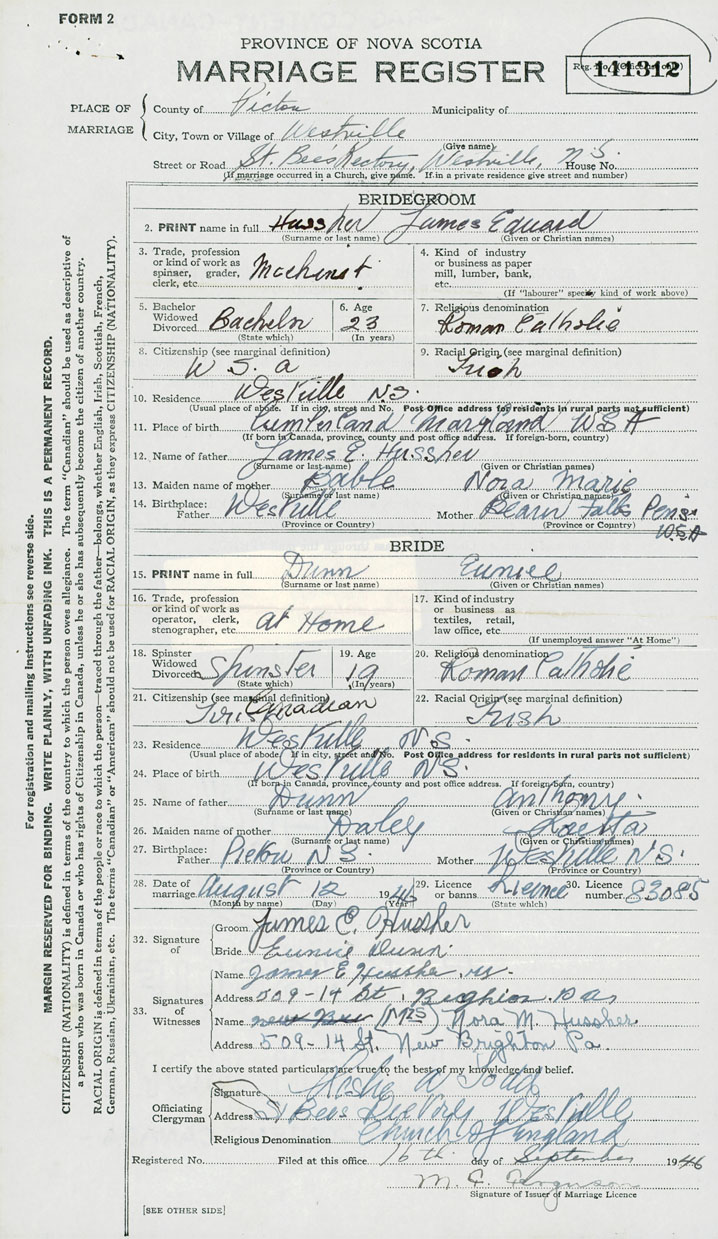 FORM 2
PROVINCE OF NOVA SCOTIA
MARRIAGE REGISTER
Reg. No. (Office use only)
141312
PLACE OF MARRIAGE
County of Pictou Municipality of
City, Town or Village of Westville
(Give name)
Street or Road St. Bees Rectory, Westville, N.S. House No.
(If marriage occurred in a Church, give name. If in a private residence give street and number)
BRIDEGROOM
2. PRINT name in full Hussher James Edward
(Surname or last name) (Given or Christian names)
3. Trade, profession or kind of work as spinner, grader, clerk, etc. Machinist
4. Kind of industry or business as paper mill, lumber, bank, etc.
(If "labourer" specify kind of work above)
5. Bachelor Widowed Divorced Bachelor
(State which)
6. Age 23
(In years)
7. Religious denomination
Roman Catholic
8. Citizenship (see marginal definition)
U S. a
9. Racial Origin (see marginal definition)
Irish
10. Residence Westville N.S.
(Usual place of abode. If in city, street and No. Post Office address for residents in rural parts not sufficient)
11. Place of birth Cumberland Maryland U S A
(If born in Canada, province, county and post office address. If foreign-born, country)
12. Name of father James E. Hussher
(Surname or last name) (Given or Christian names)
13. Maiden name of mother Nora Marie
(Surname or last name) (Given or Christian names)
14. Birthplace: Father Westville Mother Beaver Falls Pens. USA
(Province or Country) (Province or Country)
BRIDE
15. PRINT name in full Dunn Eunice
(Surname or last name) (Given or Christian names)
16. Trade, profession or kind of work as operator, clerk, stenographer, etc. at Home
17. Kind of industry or business as textiles, retail, law office, etc.
(If unemployed answer "At Home")
18. Spinster Widowed Divorced Spinster
(State which)
19. Age 19
(In years)
20. Religious denomination
Roman Catholic
21. Citizenship (see marginal definition)
Irish Canadian
22. Racial Origin (see marginal definition)
Irish
23. Residence Westville N.S.
(Usual place of abode. If in city, street and No. Post Office address for residents in rural parts not sufficient)
24. Place of birth Westville N.S.
(If born in Canada, province, county and post office address. If foreign-born, country)
25. Name of father Dunn Anthony.
(Surname or last name) (Given or Christian names)
26. Maiden name of mother Daley
(Surname or last name) (Given or Christian names)
27. Birthplace: Father Pictou N.S. Mother Westville N.S.
(Province or Country) (Province or Country)
28. Date of marriage August 12 1946
(Month by name) (Day) (Year)
29. Licence or banns Licence
(State which)
30. Licence number 83085
32. Signature of
Groom James E. Hussher
Bride Eunice Dunn
33. Signatures of Witnesses
Name James E. Hussher
Address 509-14 St.
Name (Mrs) Nora M. Hussher
Address 509-14 St. New Brighton Pa.
I certify the above stated particulars are true to the best of my knowledge and belief.
Officiating Clergyman
Signature
Address St Bees Rectory Westville
Religious Denomination Church of England
Registered No. Filed at this office 16th day of September 1946
M. C. Ferguson
Signature of Issuer of Marriage Licence
[SEE OTHER SIDE]
For registration and mailing instructions see reverse side.
MARGIN RESERVED FOR BINDING. WRITE PLAINLY, WITH UNFADING INK. THIS IS A PERMANENT RECORD.
CITIZENSHIP (NATIONALITY) is defined in terms of the country to which the person owes allegiance. The term "Canadian" should be used as descriptive of
a person who was born in Canada or who has rights of Citizenship in Canada, unless he or she has subsequently become the citizen of another country.
RACIAL ORIGIN is defined in terms of the people or race to which the person—traced through the father—belongs, whether English, Irish, Scottish, French,
German, Russian, Ukrainian, etc. The terms "Canadian" or "American" should not be used for RACIAL ORIGIN, as they express CITIZENSHIP (NATIONALITY).